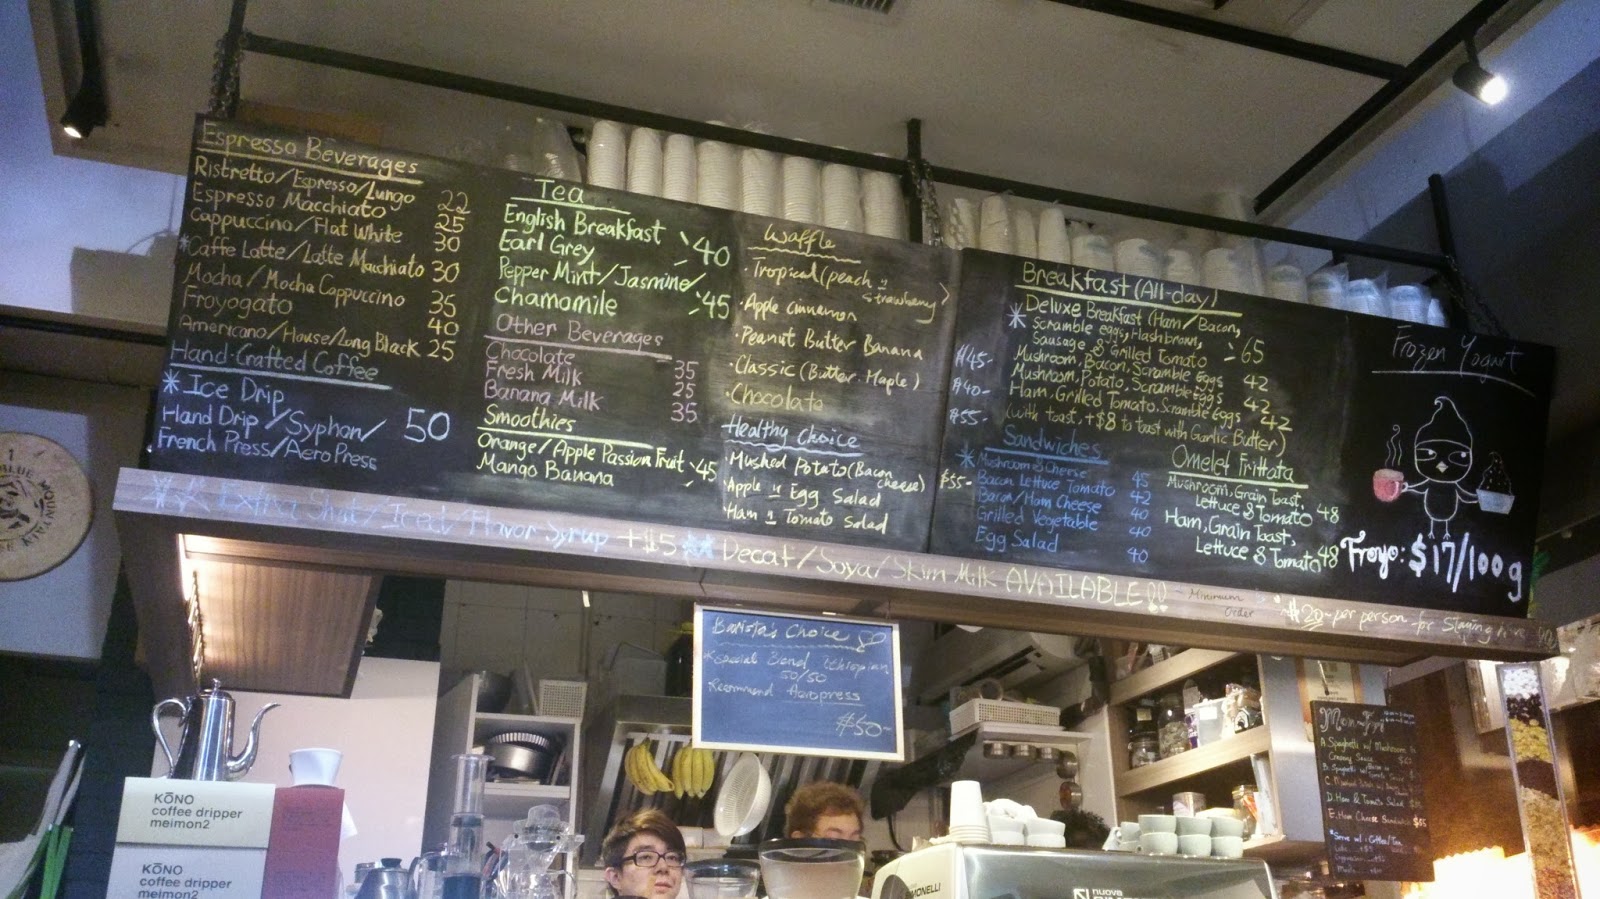 Espresso Beverages
Ristretto/Espresso/Lungo 22
Espresso Macchiato 25
Cappuccino/Flat White 30
*Caffe Latte/Latte Macchiato 30
Mocha/Mocha Cappuccino 35
Froyogato 40
Americano/House/Long Black 25
Hand-Crafted Coffee
*Ice Drip
Hand Drip/Syphon/ 50
French Press/AeroPress
Tea
English Breakfast
Earl Grey 40
Pepper Mint/Jasmine/
Chamomile 45
Other Beverages
Chocolate 35
Fresh Milk 25
Banana Milk 35
Smoothies
Orange/Apple Passion Fruit 45
Mango Banana
Waffle
·Tropical (peach
strawberry)
·Apple cinnamon
·Peanut Butter Banana
·Classic (Butter. Maple)
·Chocolate
$45-
$40-
$55-
Healthy Choice
·Mushed Potato (Bacon
cheese)
·Apple Egg Salad
·Ham Tomato Salad
$55-
Breakfast (All-day)
*Deluxe Breakfast (Ham/Bacon,
Scramble eggs, Hashbrown,
Sausage & Grilled Tomato 65
Mushroom, Bacon, Scramble Eggs 42
Mushroom, Potato, Scramble Eggs 42
Ham, Grilled Tomato, Scramble Eggs 42
(with toast, +$8 to toast with Garlic Butter)
Sandwiches
*Mushroom & Cheese 45
Bacon Lettuce Tomato 42
Bacon/Ham Cheese 40
Grilled Vegetable 40
Egg Salad 40
Omelet Frittata
Mushroom, Grain Toast,
Lettuce & Tomato 48
Ham, Grain Toast,
Lettuce & Tomato 48
Frozen Yogurt
Froyo: $17/100g
Extra Shot/Iced/Flavor Syrup +$5 Decaf/Soya/Skim Milk AVAILABLE!!
Minimum
Order
$20- per person for staying here
Barista's Choice
*Special Blend Ethiopian
50/50
Recommend Aeropress
$50-
A. Spaghetti w/ Mushroom
Creamy Sauce
D. Ham & Tomato Salad
E. Ham Cheese Sandwich $45
KŌNO
coffee dripper
meimon2
KŌNO
coffee dripper
meimon2
MONELLI
nuova